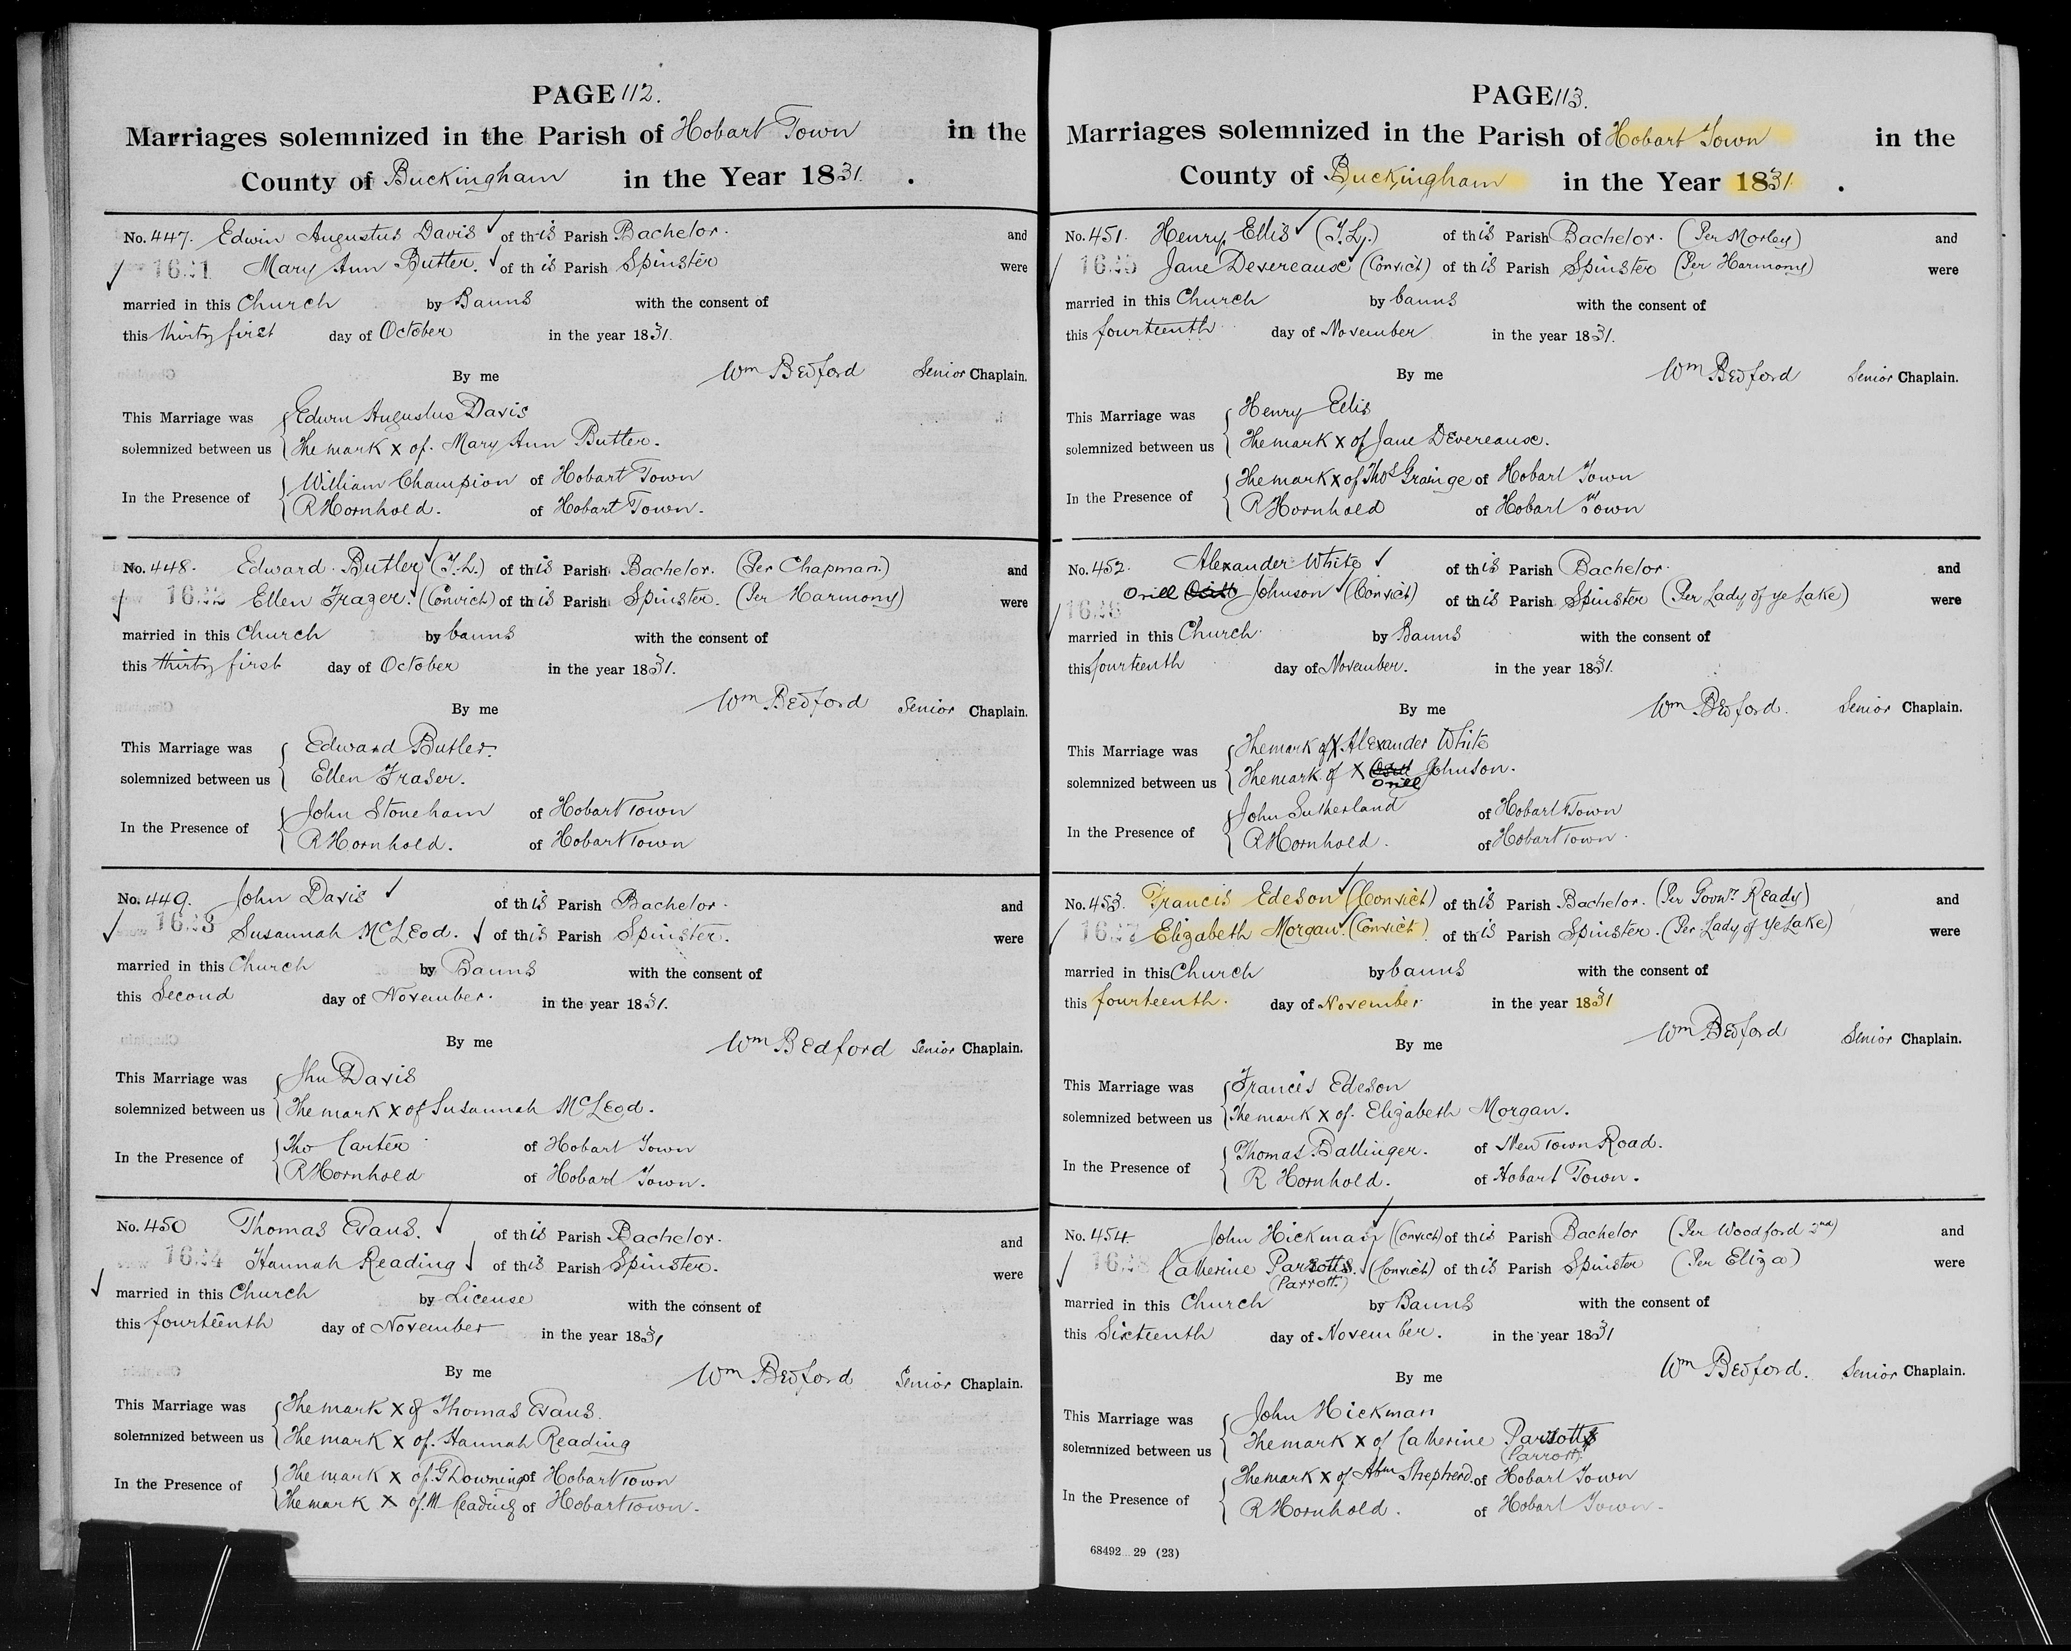 PAGE 112.
Marriages solemnized in the Parish of Hobart Town in the
County of Buckingham in the Year 1831.
No. 447. Edwin Augustus Davis of this Parish Bachelor. and
1621 Mary Ann Butler. of this Parish Spinster were
married in this Church by Banns with the consent of
this thirty first day of October in the year 1831.
By me Wm Bedford Senior Chaplain.
This Marriage was Edwin Augustus Davis
solemnized between us The mark x of. Mary Ann Butler.
In the Presence of
William Champion of Hobart Town
R Hornhold. of Hobart Town.
No. 448. Edward Butler (T.L.) of this Parish Bachelor. (Per Chapman.) and
1622 Ellen Frazer. (Convict) of this Parish Spinster. (Per Harmony) were
married in this Church by banns with the consent of
this thirty first day of October in the year 1831.
By me Wm Bedford Senior Chaplain.
This Marriage was Edward Butler.
solemnized between us Ellen Fraser.
In the Presence of
John Stoneham of Hobart Town
R Hornhold. of Hobart Town
No. 449. John Davis of this Parish Bachelor. and
1623 Susannah McLeod. of this Parish Spinster. were
married in this Church by Banns with the consent of
this Second day of November. in the year 1831.
By me Wm Bedford Senior Chaplain.
This Marriage was Jhn Davis
solemnized between us The mark x of Susannah McLeod.
In the Presence of
Tho Carter of Hobart Town
R Hornhold of Hobart Town.
No. 450 Thomas Evans. of this Parish Bachelor. and
1624 Hannah Reading of this Parish Spinster. were
married in this Church by License with the consent of
this fourteenth day of November in the year 1831
By me Wm Bedford Senior Chaplain.
This Marriage was The mark x of Thomas Evans.
solemnized between us The mark x of. Hannah Reading
In the Presence of
The mark x of. G Downing of Hobart Town
The mark x of. M Reading of Hobart Town.
PAGE 113.
Marriages solemnized in the Parish of Hobart Town in the
County of Buckingham in the Year 1831.
No. 451. Henry Ellis (T.L.) of this Parish Bachelor. (Per Morley) and
1625 Jane Devereause (Convict) of this Parish Spinster (Per Harmony) were
married in this Church by banns with the consent of
this fourteenth day of November in the year 1831.
By me Wm Bedford Senior Chaplain.
This Marriage was Henry Ellis
solemnized between us The mark x of Jane Devereause.
In the Presence of
The mark x of Thos Grainge of Hobart Town
R Hornhold of Hobart Town
No. 452. Alexander White of this Parish Bachelor. and
1626 Orill Johnson (Convict) of this Parish Spinster (Per Lady of ye Lake) were
married in this Church by Banns with the consent of
this fourteenth day of November. in the year 1831.
By me Wm Bedford. Senior Chaplain.
This Marriage was The mark of x Alexander White
solemnized between us The mark of x Johnson.
Orill
In the Presence of
John Sutherland of Hobart Town
R Hornhold. of Hobart Town.
No. 453. Francis Edeson (Convict) of this Parish Bachelor. (Per Govnr. Ready) and
1627 Elizabeth Morgan (Convict) of this Parish Spinster. (Per Lady of ye Lake) were
married in this Church by banns with the consent of
this fourteenth. day of November in the year 1831
By me Wm Bedford Senior Chaplain.
This Marriage was Francis Edeson
solemnized between us The mark x of. Elizabeth Morgan.
In the Presence of
Thomas Ballinger. of New Town Road.
R Hornhold. of Hobart Town.
No. 454. John Hickman (Convict) of this Parish Bachelor (Per Woodford 2nd) and
1628 Catherine Parrotts. (Convict) of this Parish Spinster (Per Eliza) were
(Parrott.)
married in this Church by Banns with the consent of
this Sixteenth day of November. in the year 1831
By me Wm Bedford. Senior Chaplain.
This Marriage was John Hickman
solemnized between us The mark x of Catherine Parrotts
(Parrott).
In the Presence of
The mark x of Abm Shepherd. of Hobart Town
R Hornhold. of Hobart Town.
68492 29 (23)